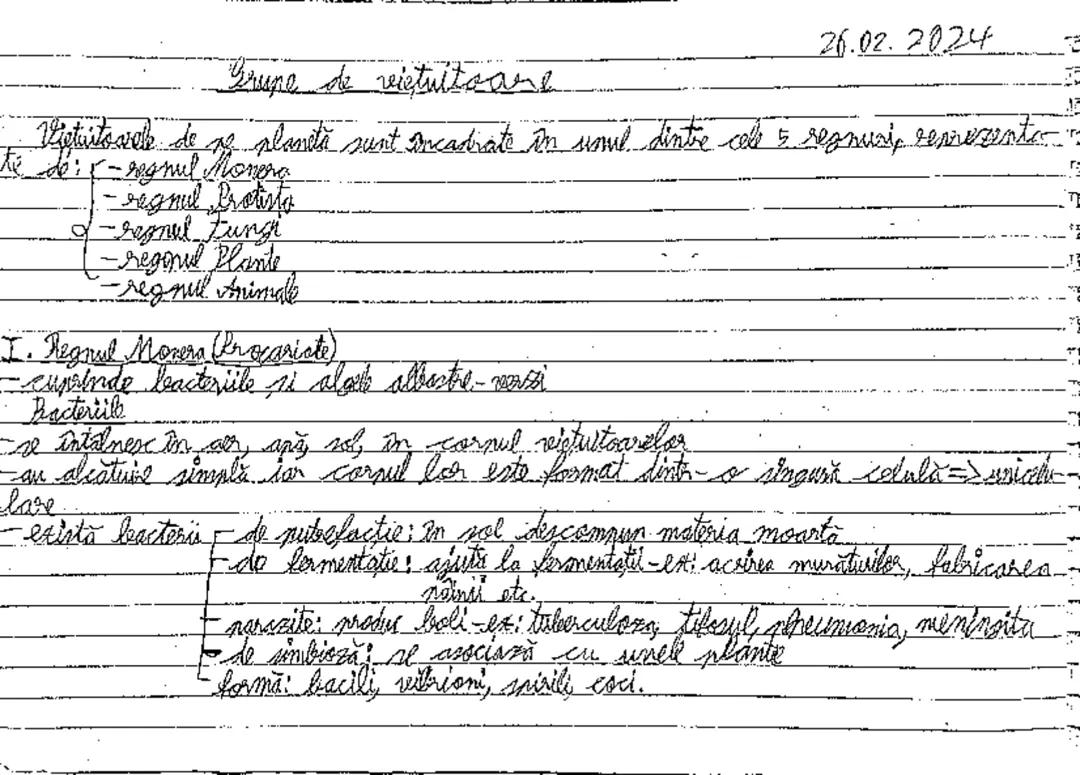 26.02.2024
Grupe de viețuitoare
Viețuitoarele de pe planetă sunt încadrate în unul dintre cele 5 regnuri, reprezenta-
te de: - regnul Monera
- regnul Protista
- regnul Fungi
- regonul Plante
- regnul Animale
I. Regnul Monera (Procariate)
- cuprinde bacteriile și algele albastre-verzi
Bacteriile
- se întâlnesc în aer, apă, sol, în corpul viețuitoarelor
- au alcătuire simplă iar corpul lor este format dintr-o singură celulă => unicelu-
lare
- există bacterii - de putrefacție: în sol descompun materia moartă
- de fermentație: ajută la fermentații - ex: acrirea murăturilor, fabricarea
pâinii etc.
- parazite: produc boli - ex: tuberculoza, tifosul, pneumonia, meningita
- de simbioză: se asociază cu unele plante
- formă: bacili, vibrioni, spirili, coci.